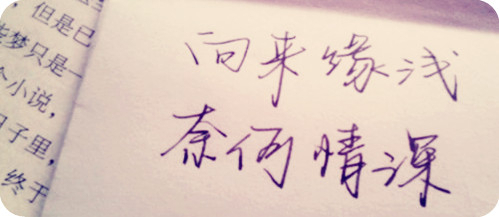 但是已
梦只是一
小说,
子里,
终于
向来缘浅
奈何情深